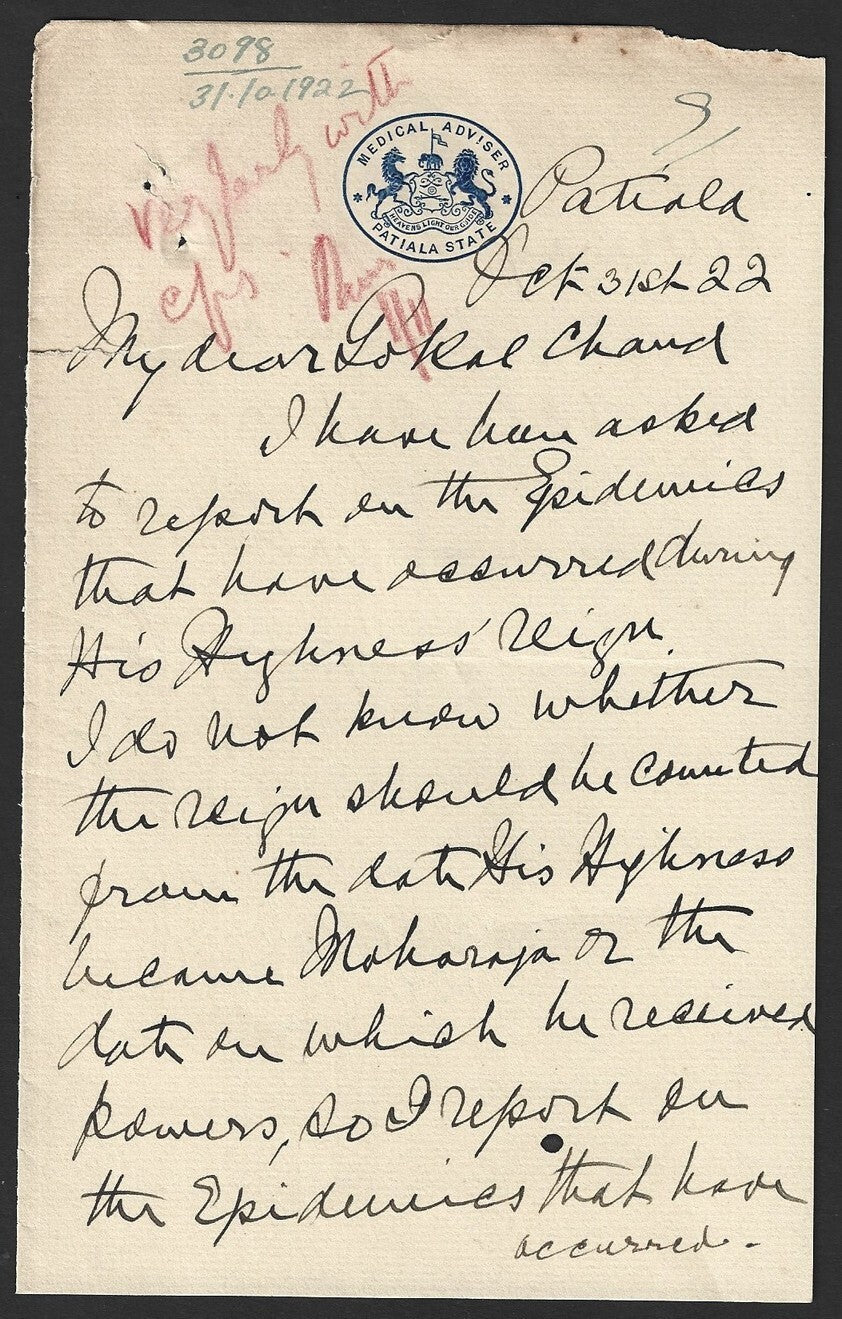 3098
31.10.1922
with
MEDICAL ADVISER
HEAVEN'S LIGHT OUR GUIDE
PATIALA STATE
Patiala
Oct 31st 22
My dear Gokal Chand
I have been asked
to report on the Epidemics
that have occurred during
His Highness' reign
I do not know whether
the reign should be counted
from the date His Highness
became Maharaja or the
date on which he received
powers, so I report on
the Epidemics that have
occurred. -